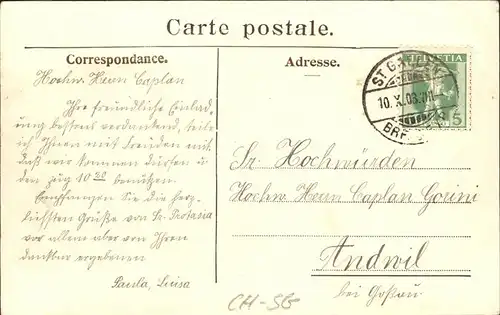 Carte postale.
Correspondance.
Adresse.
HELVETIA
5
ST. GALLEN
10. X. 08.
Hochw. Herrn Caplan
Ihre freundliche Einlad-
ung bestens verdankend, teile
ich Ihnen mit Freuden mit
daß wir kommen dürfen u
den Zug 10 20 benützen.
Empfangen Sie die herz-
lichsten Grüße von Sr. Protasia
vor allem aber von Ihren
dankbar ergebenen
Paula, Luisa
Sr. Hochwürden
Hochw. Herrn Caplan Gorini
Andwil
bei Goßau
CH-SG